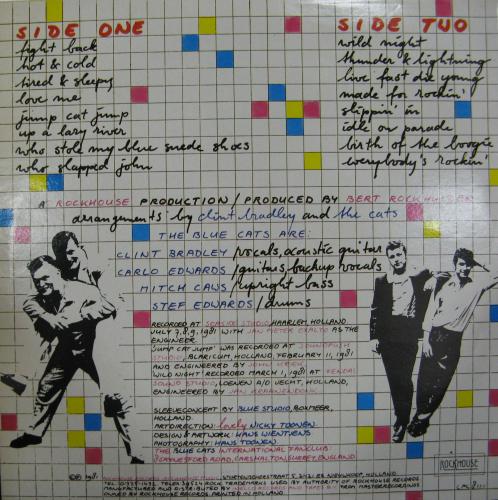 SIDE ONE
fight back
hot & cold
tired & sleepy
love me
jump cat jump
up a lazy river
who stole my blue suede shoes
who slapped john
SIDE TWO
wild night
thunder & lightning
live fast die young
made for rockin'
slippin' in
idle on parade
birth of the boogie
everybody's rockin'
A ROCKHOUSE PRODUCTION / PRODUCED BY BERT ROCKHUIZEN
arrangements by clint bradley and the cats
THE BLUE CATS ARE:
CLINT BRADLEY / vocals, acoustic guitar
CARLO EDWARDS / guitars, backup vocals
MITCH CAWS / upright bass
STEF EDWARDS / drums
RECORDED AT STUDIO, HAARLEM, HOLLAND,
JULY 7,8,9, 1981 WITH JAN PIETER EXALTO AS THE
ENGINEER.
'JUMP CAT JUMP' WAS RECORDED AT SOUNDPUSH
STUDIO, BLARICUM, HOLLAND, FEBRUARY 11, 1981
AND ENGINEERED BY JOHN
'WILD NIGHT' RECORDED MARCH 1, 1981 AT
SOUND STUDIO, LOENEN A/D VECHT, HOLLAND,
ENGINEERED BY JAN
SLEEVECONCEPT BY BLUE STUDIO, BOXMEER,
HOLLAND.
ARTDIRECTION: lovely NICKY TOONEN
DESIGN & ARTWORK: HANS WIENTJENS
PHOTOGRAPHY: HANS TOONEN.
THE BLUE CATS INTERNATIONAL FANCLUB:
CARSHALTON, SURREY, ENGLAND
1981
HOLLAND
ROCK TRADEMARKS USED BY AUTHORITY OF ROCKHOUSE RECORDS
MANUFACTURED AND DISTRIBUTED BY RECORDS AND TAPES BV FROM MASTERRECORDINGS
OWNED BY ROCKHOUSE RECORDS PRINTED IN HOLLAND
ROCKHOUSE